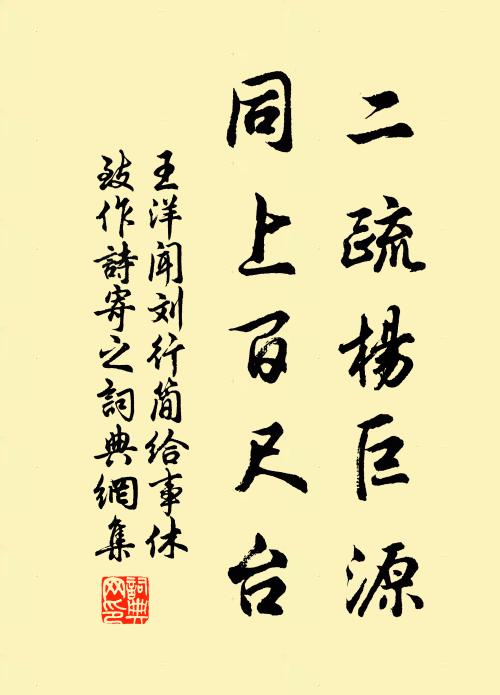 二疏楊巨源
同上百尺台
王洋聞刘行简给事休
致作詩寄之詞典網集